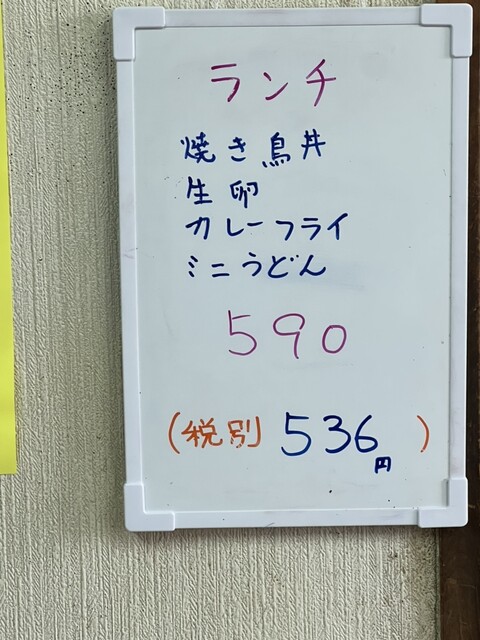 ランチ
焼き鳥丼
生卵
カレーフライ
ミニうどん
590
(税別 536円)